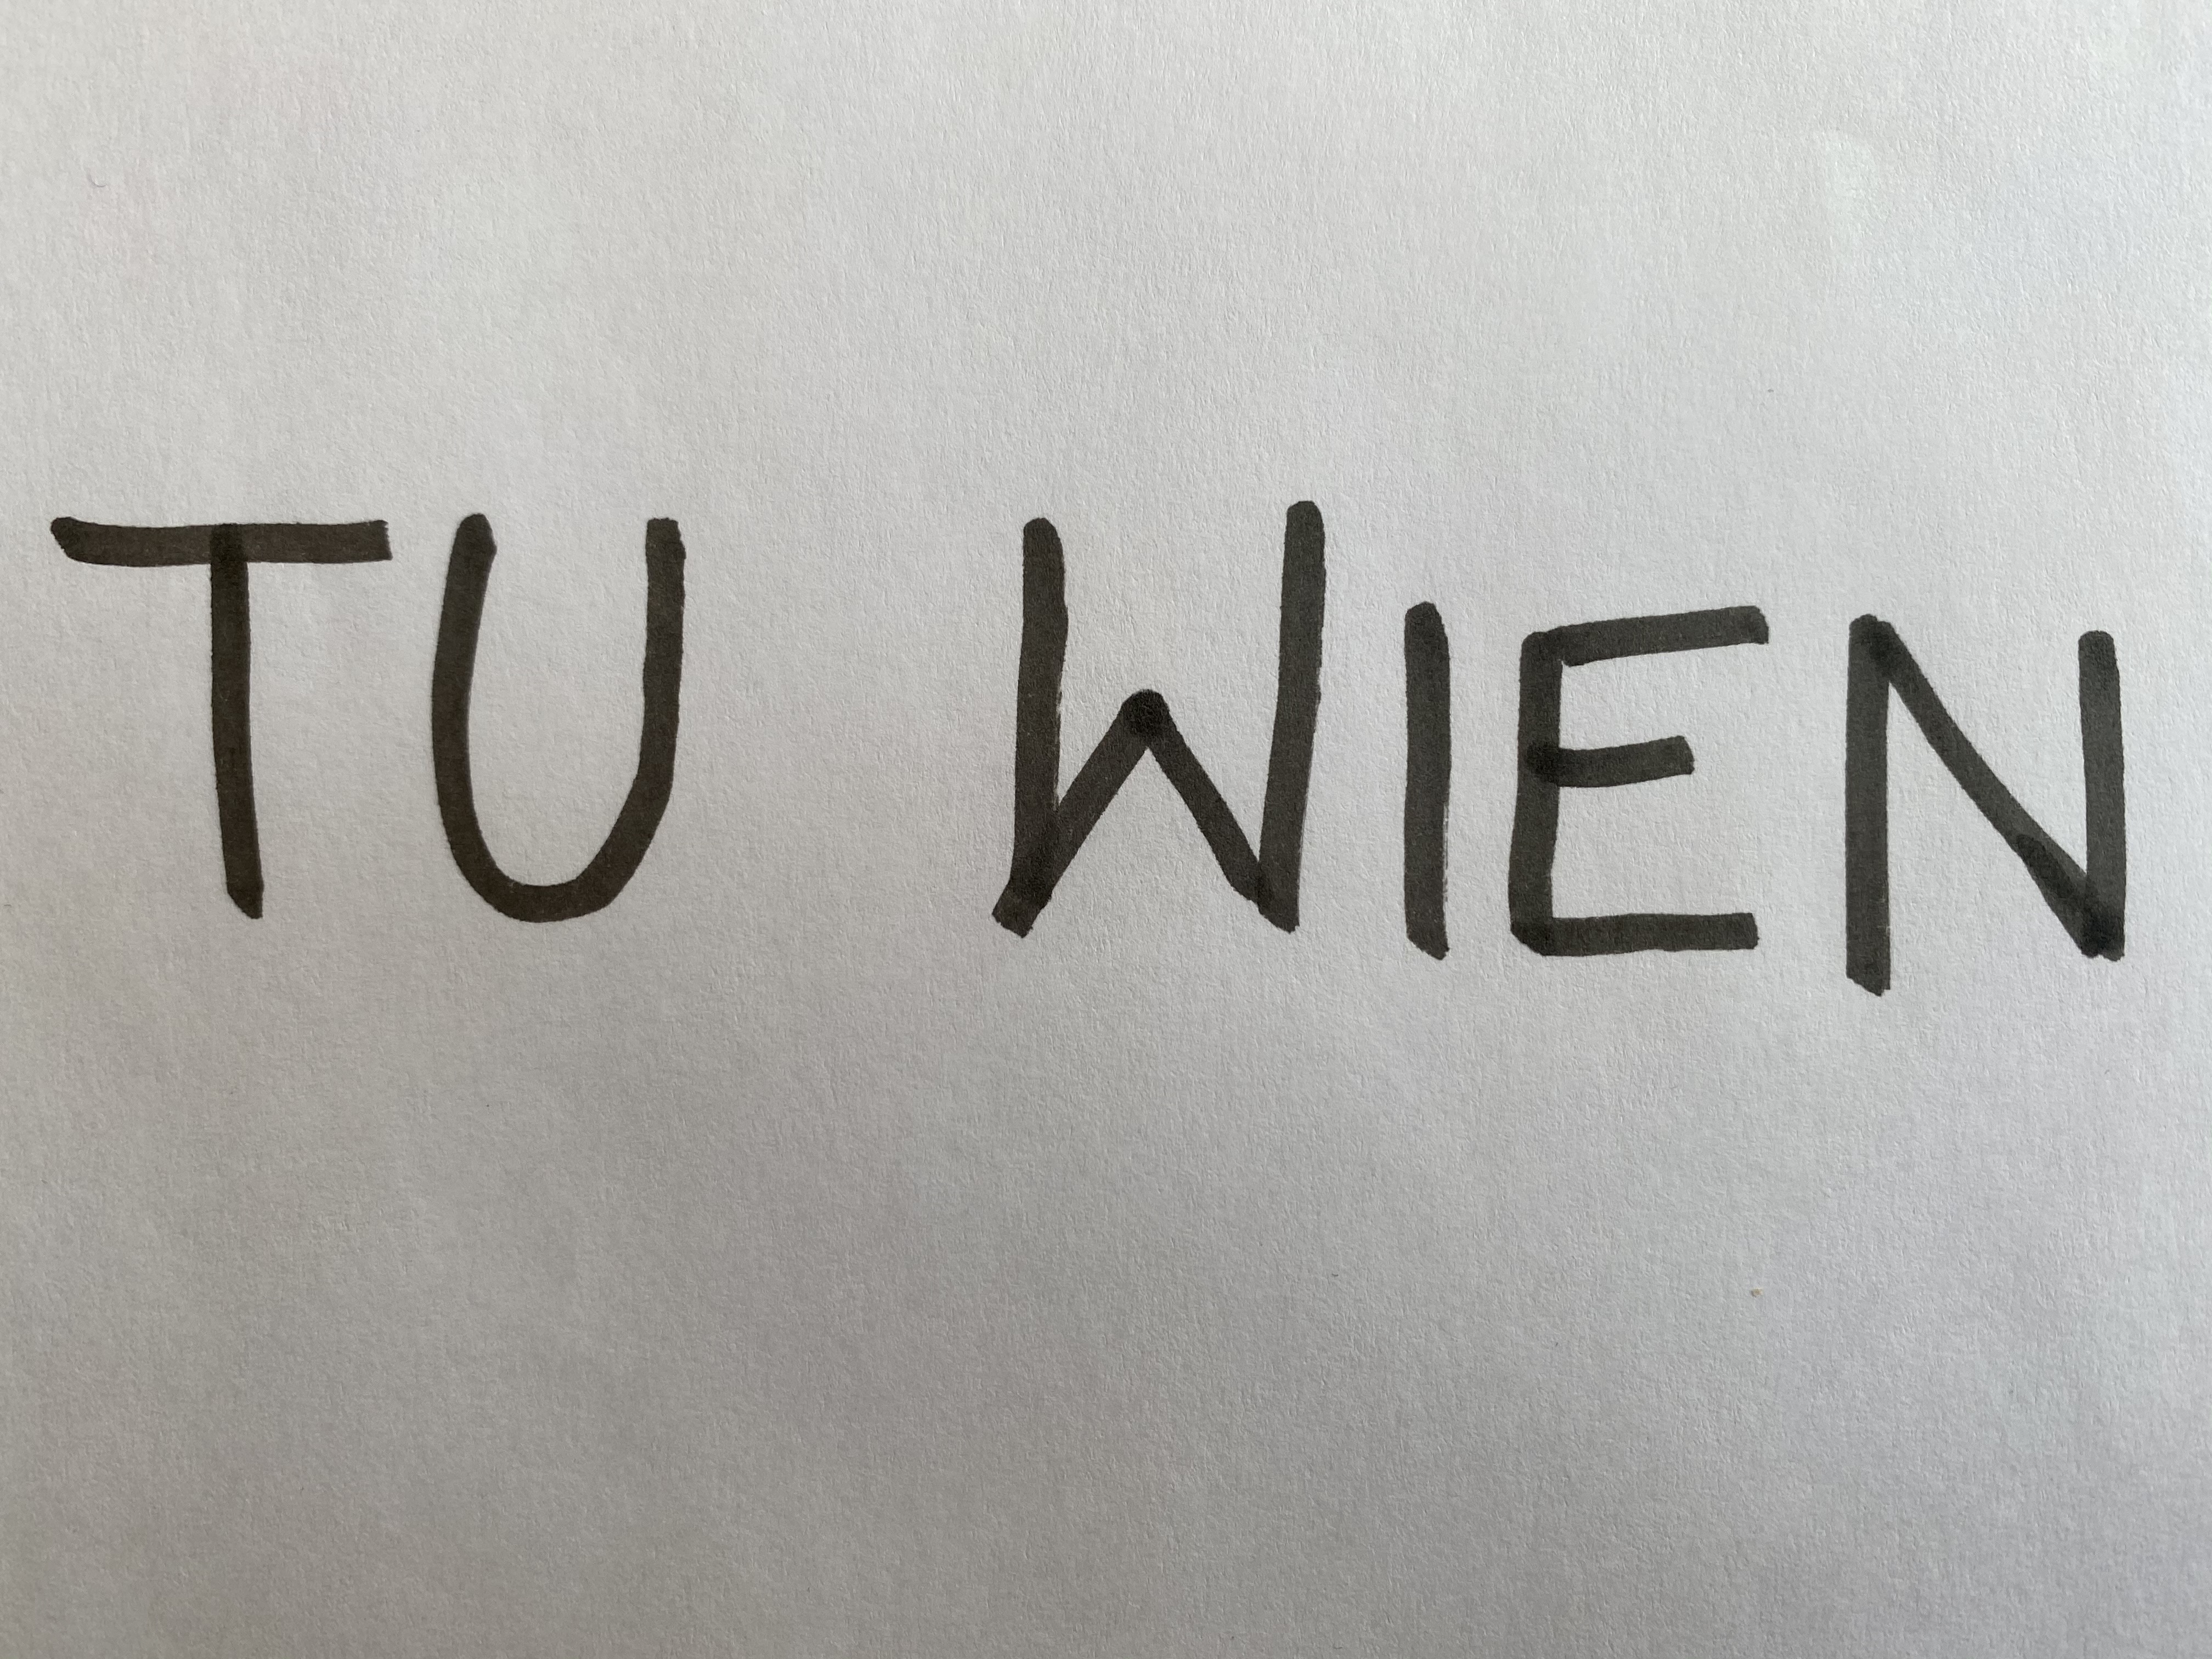 TU WIEN